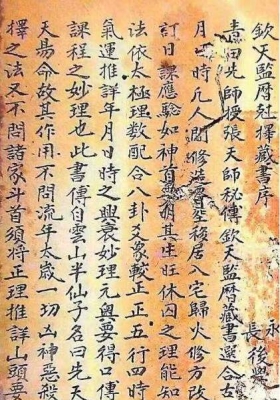 欽天監府尅擇藏書序
永
長後學
吉田先師授張天師秘傳欽天監曆藏書選合古
月日時凡人間修造移居入宅歸火修方改
訂日課應驗如神其生旺休囚之理能知
法依太極理數配合八卦爻象較正正五行四時
氣運推詳年月日時之興衰妙理元奧要得口傳
課程之妙理也此書傳自雲山半仙子名曰先天
天易命故其作用不問流年太歲一切凶神惡殺
擇之法又不問諸家斗首須將正理推詳山頭要